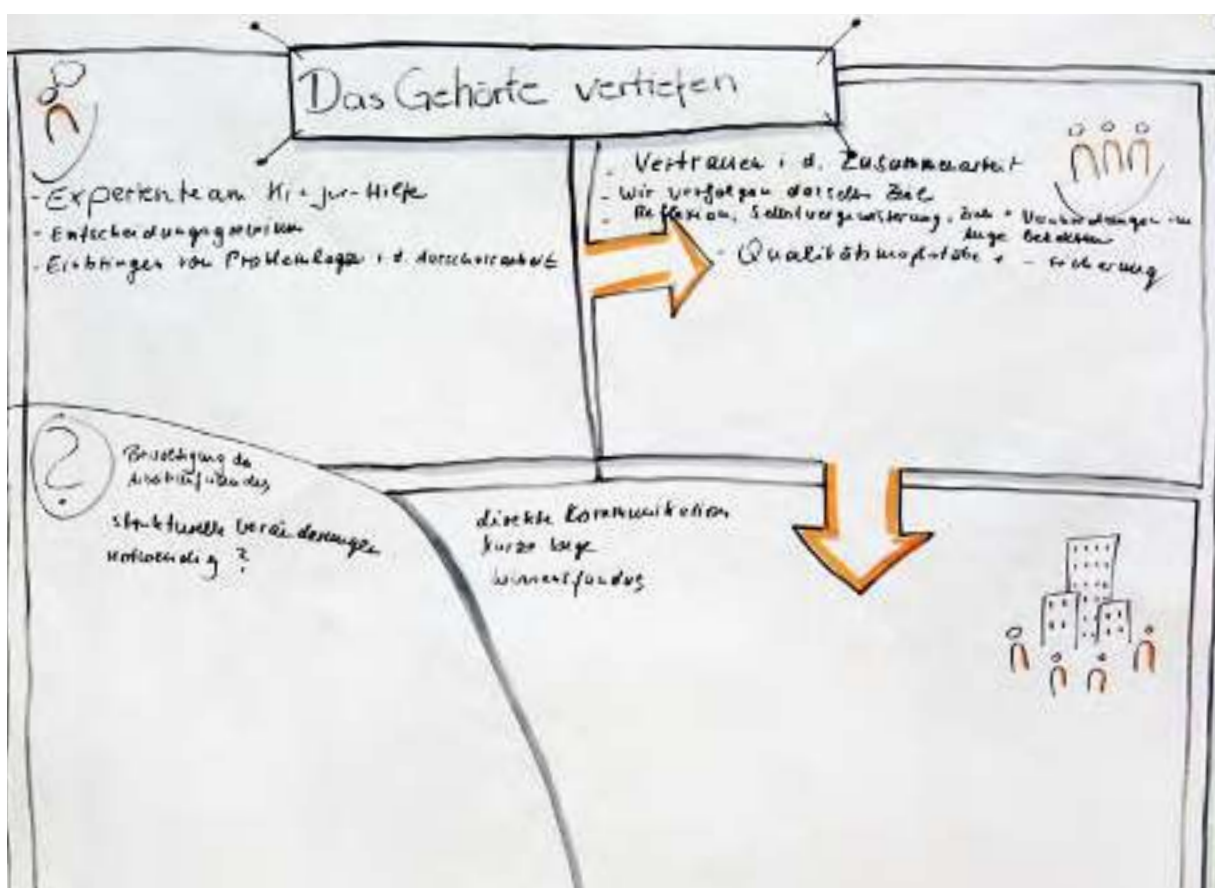 Das Gehörte vertiefen
- Expertenteam Ki + Jur-Hilfe
- Entscheidungsgremium
- Einbringen von Problemlagen i. d.
- Vertrauen i. d. Zusammenarbeit
- Wir verfolgen dasselbe Ziel
- Reflexion, Selbstvergewisserung, Ziele +
Auge behalten
- Qualitätsmaßstäbe + - sicherung
?
strukturelle Veränderungen
notwendig ?
direkte Kommunikation
kurze Wege
Wissensfundus